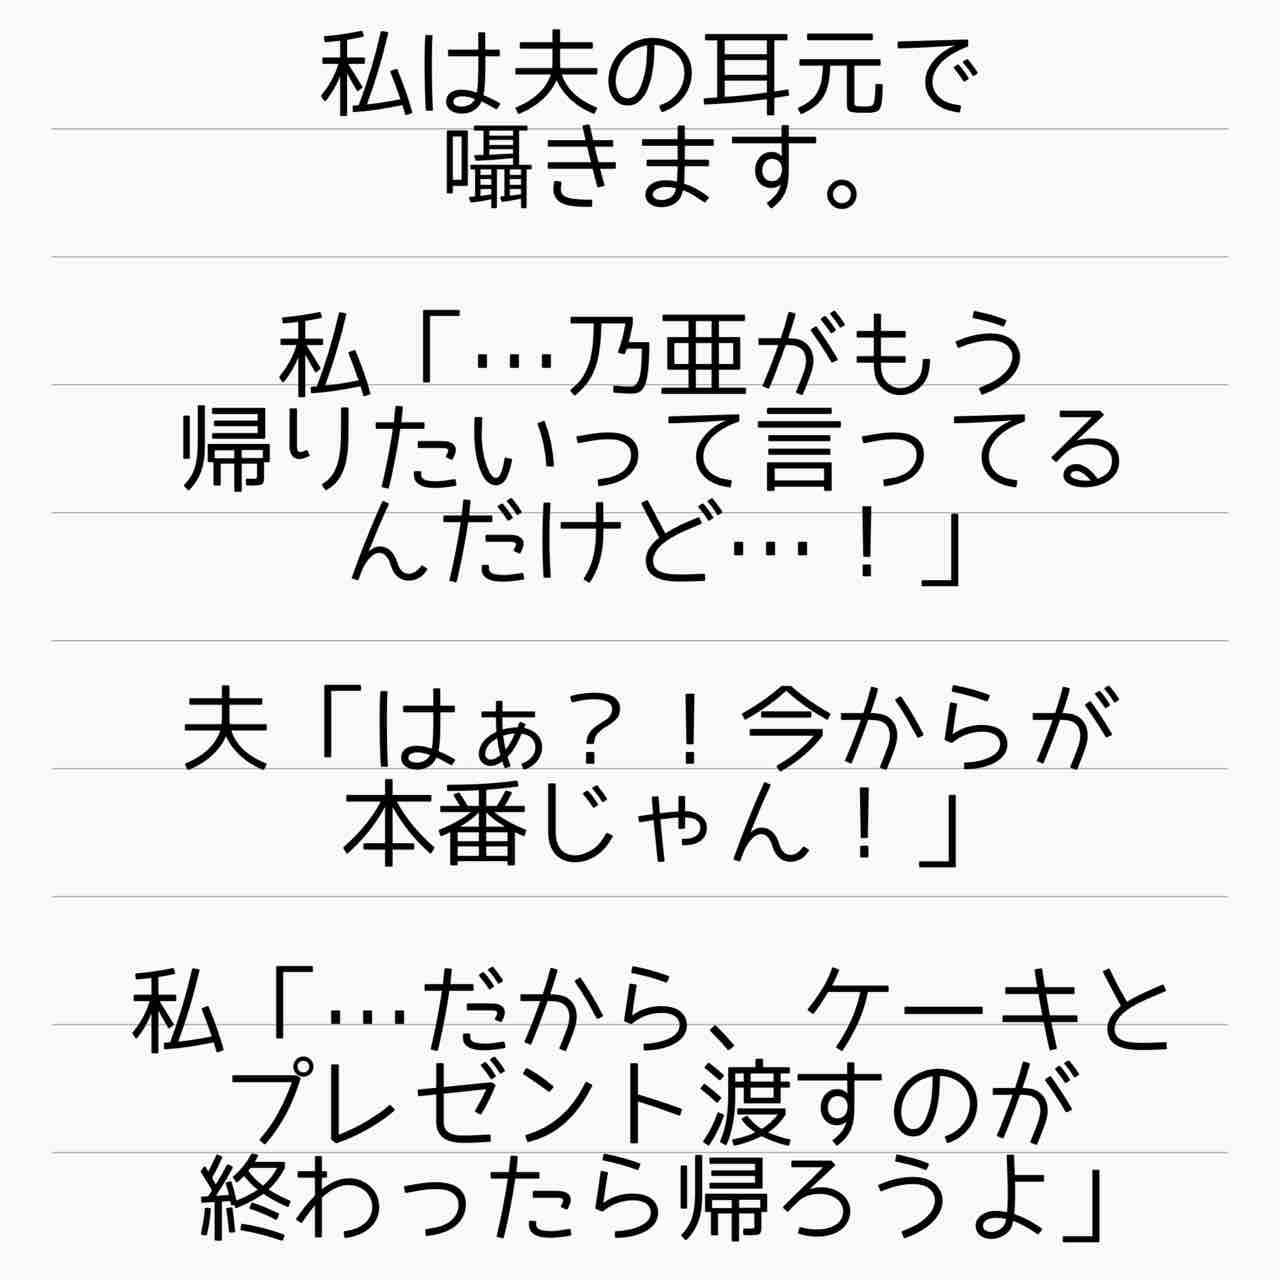 私は夫の耳元で
囁きます。
私「…乃亜がもう
帰りたいって言ってる
んだけど…！」
夫「はぁ？！今からが
本番じゃん！」
私「…だから、ケーキと
プレゼント渡すのが
終わったら帰ろうよ」